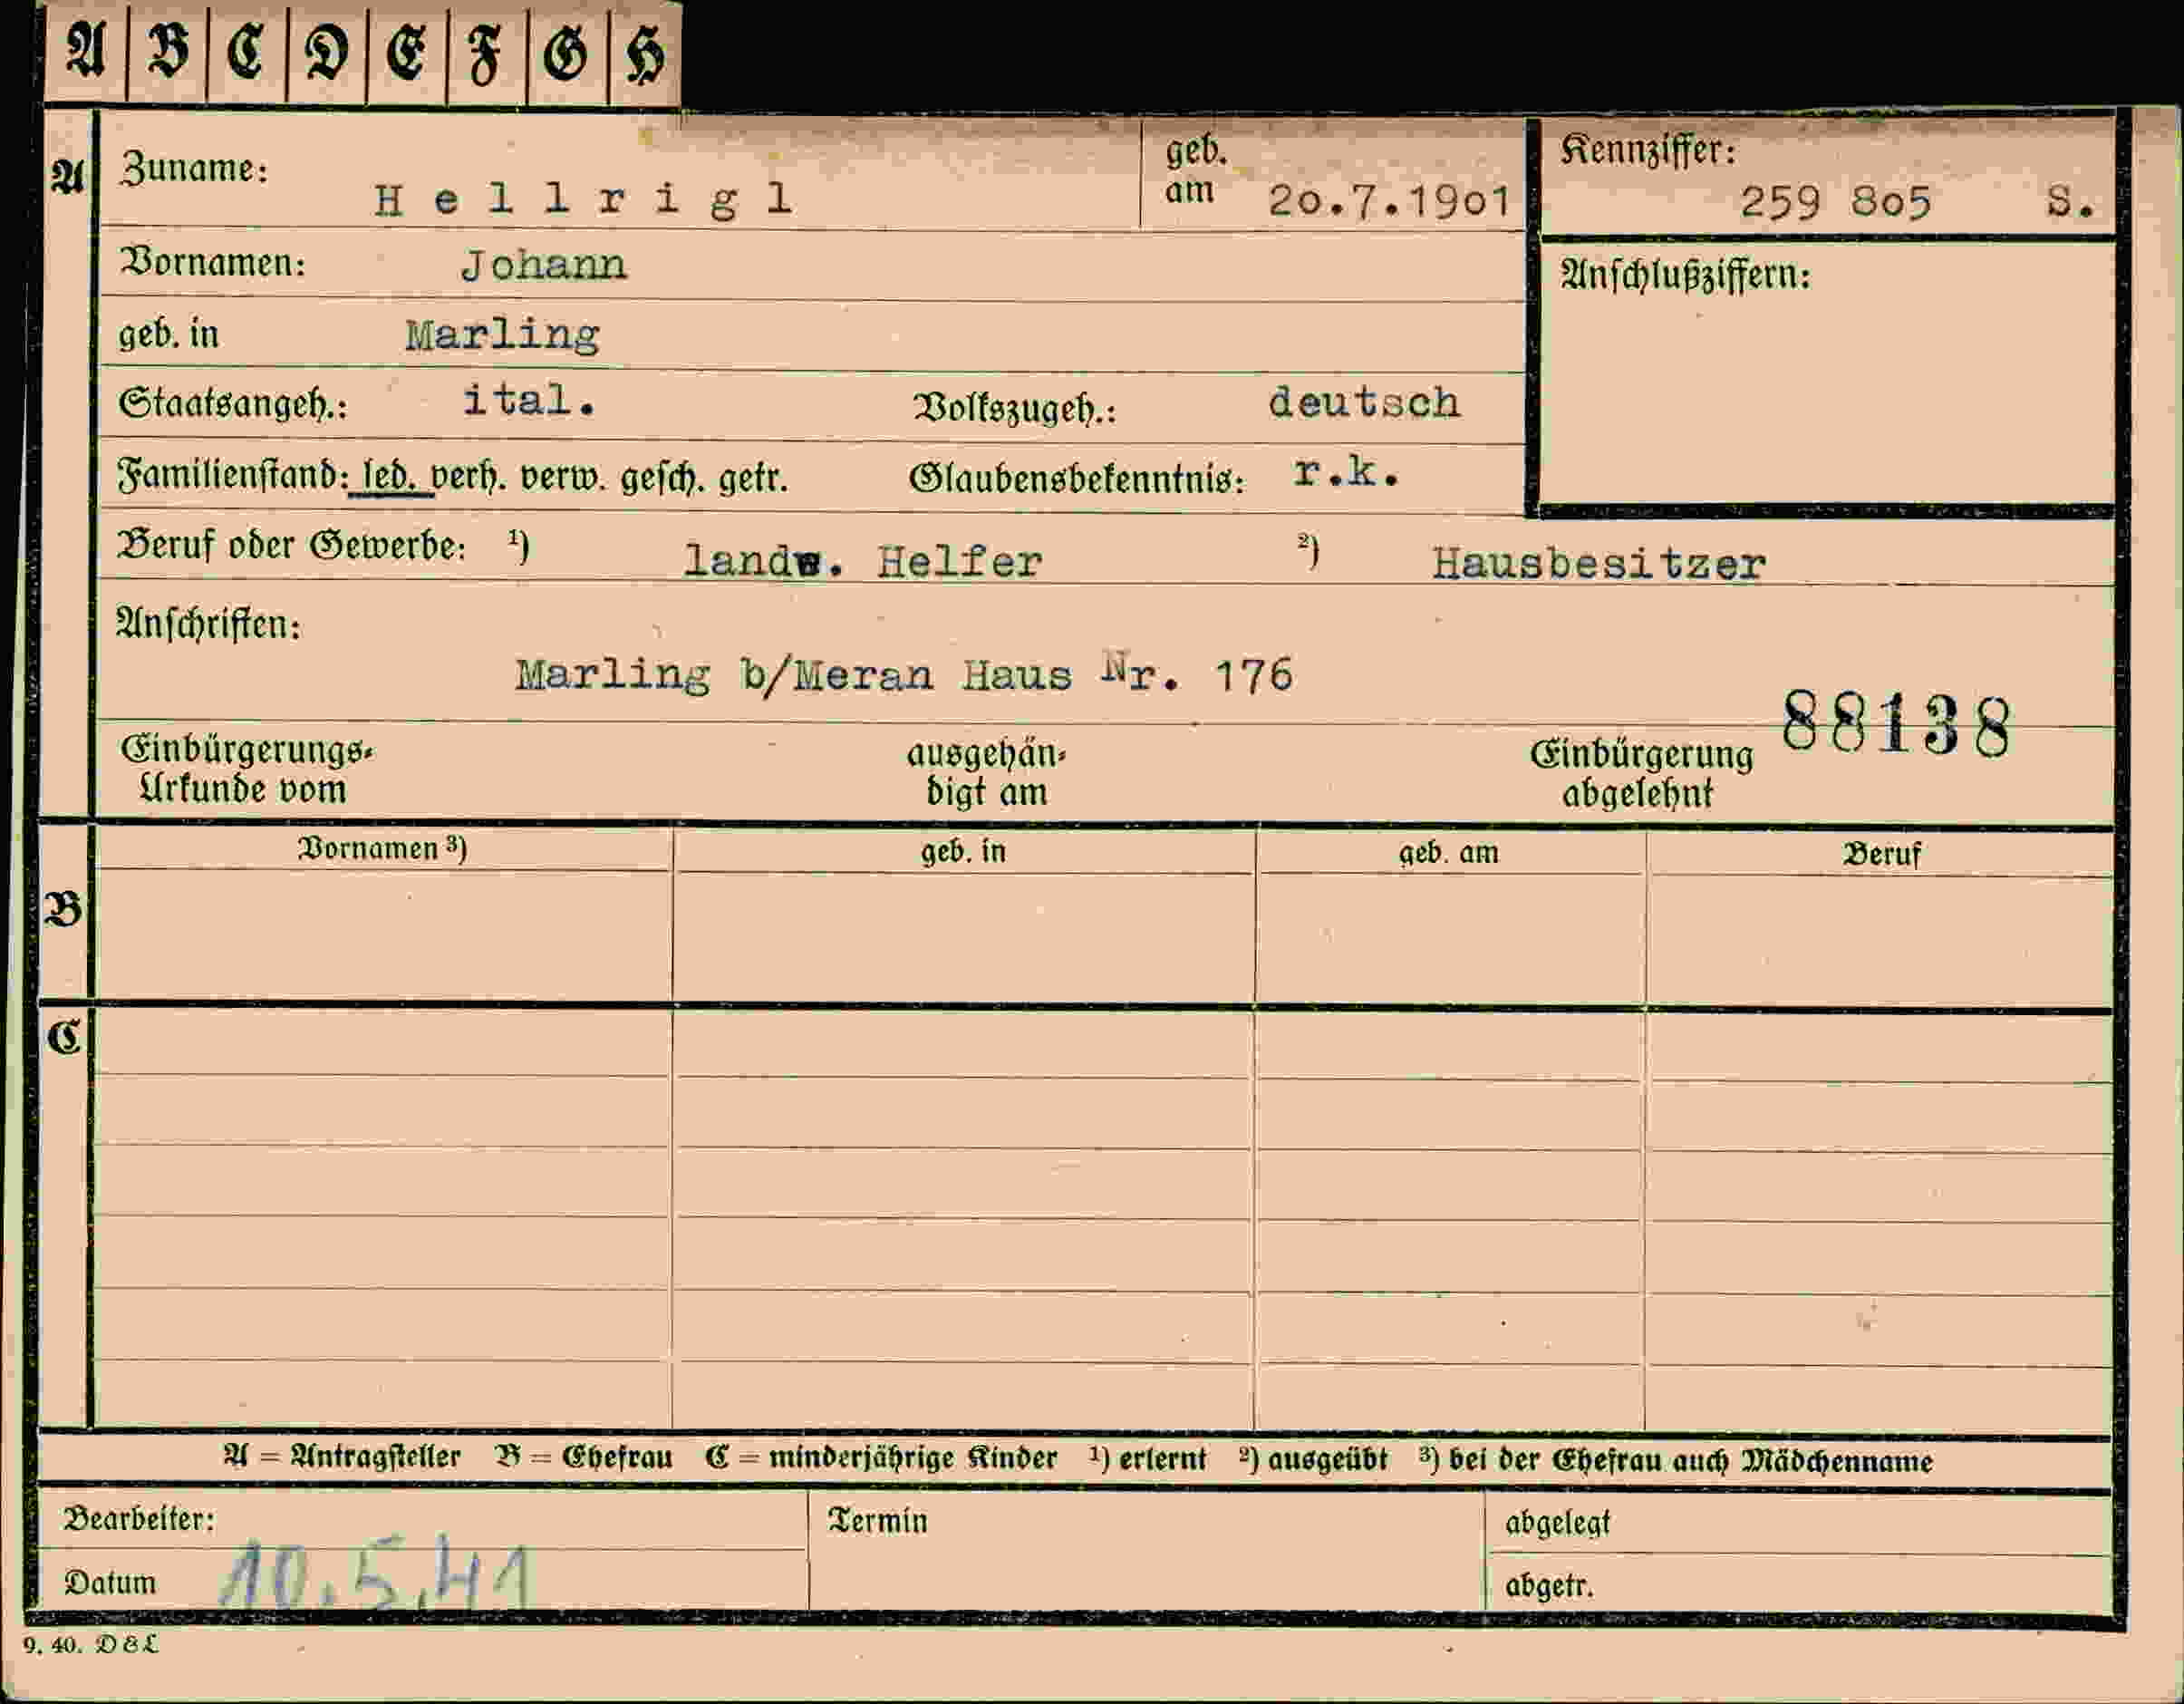 A B C D E F G H
A Zuname: Hellrigl geb. am 20.7.1901 Kennziffer: 259 805 S.
Vornamen: Johann Anschlußziffern:
geb. in Marling
Staatsangeh.: ital. Volkszugeh.: deutsch
Familienstand: led. verh. verw. gesch. getr. Glaubensbekenntnis: r.k.
Beruf oder Gewerbe: 1) landw. Helfer 2) Hausbesitzer
Anschriften:
Marling b/Meran Haus Nr. 176
88138
Einbürgerungs- ausgehän- Einbürgerung
Urkunde vom digt am abgelehnt
Vornamen 3) geb. in geb. am Beruf
B
C
A = Antragsteller B = Ehefrau C = minderjährige Kinder 1) erlernt 2) ausgeübt 3) bei der Ehefrau auch Mädchenname
Bearbeiter: Termin abgelegt
Datum 10.5.41 abgetr.
9. 40. D&L